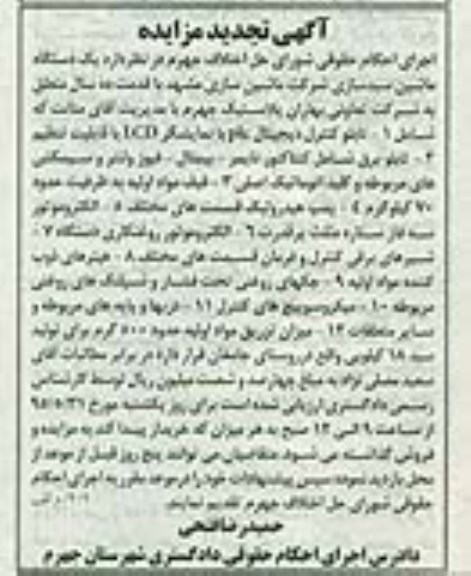 آگهی تجدید مزایده
اجرای احکام حقوقی شورای حل اختلاف جهرم در نظر دارد یک دستگاه
ماشین سبدسازی شرکت ماشین سازی مشهد با قدمت ده سال متعلق
به شرکت تعاونی بهاران پلاستیک جهرم با مدیریت آقای که
شامل ۱ - تابلو کنترل دیجیتال plc با نمایشگر LCD با قابلیت تنظیم
۲ - تابلو برق شامل کنتاکتور تایمر - بیمتال - فیوز ولتمتر و سیمکشی
های مربوطه و کلید اتوماتیک اصلی ۳ - قیف مواد اولیه به ظرفیت حدود
۷۰ کیلوگرم ۴ - پمپ هیدرولیک قسمت های مختلف ۵ - الکتروموتور
سه فاز ستاره مثلث پرقدرت ۶ - الکتروموتور روغنکاری دستگاه ۷ -
شیرهای برقی کنترل و فرمان قسمت های مختلف ۸ - هیترهای ذوب
کننده مواد اولیه ۹ - جکهای روغنی تحت فشار و شیلنگ های روغنی
مربوطه ۱۰ - میکروسوییچ های کنترل ۱۱ - دربها و پایه های مربوطه و
سایر متعلقات ۱۲ - میزان تزریق مواد اولیه حدود ۵۰۰ گرم برای تولید
سبد ۱۸ کیلویی واقع در روستای قرار دارد در برابر مطالبات آقای
سعید نژاد به مبلغ چهارصد و شصت میلیون ریال توسط کارشناس
رسمی دادگستری ارزیابی شده است برای روز یکشنبه مورخ ۹۵/۶/۲۱
از ساعت ۹ الی ۱۲ صبح به هر میزان که خریدار پیدا کند به مزایده و
فروش گذاشته می شود. متقاضیان می توانند پنج روز قبل از موعد از
محل بازدید نموده سپس پیشنهادات خود را در موعد مقرر به اجرای احکام
حقوقی شورای حل اختلاف جهرم تقدیم نمایند.
حمیدرضا فتحی
دادرس اجرای احکام حقوقی دادگستری شهرستان جهرم